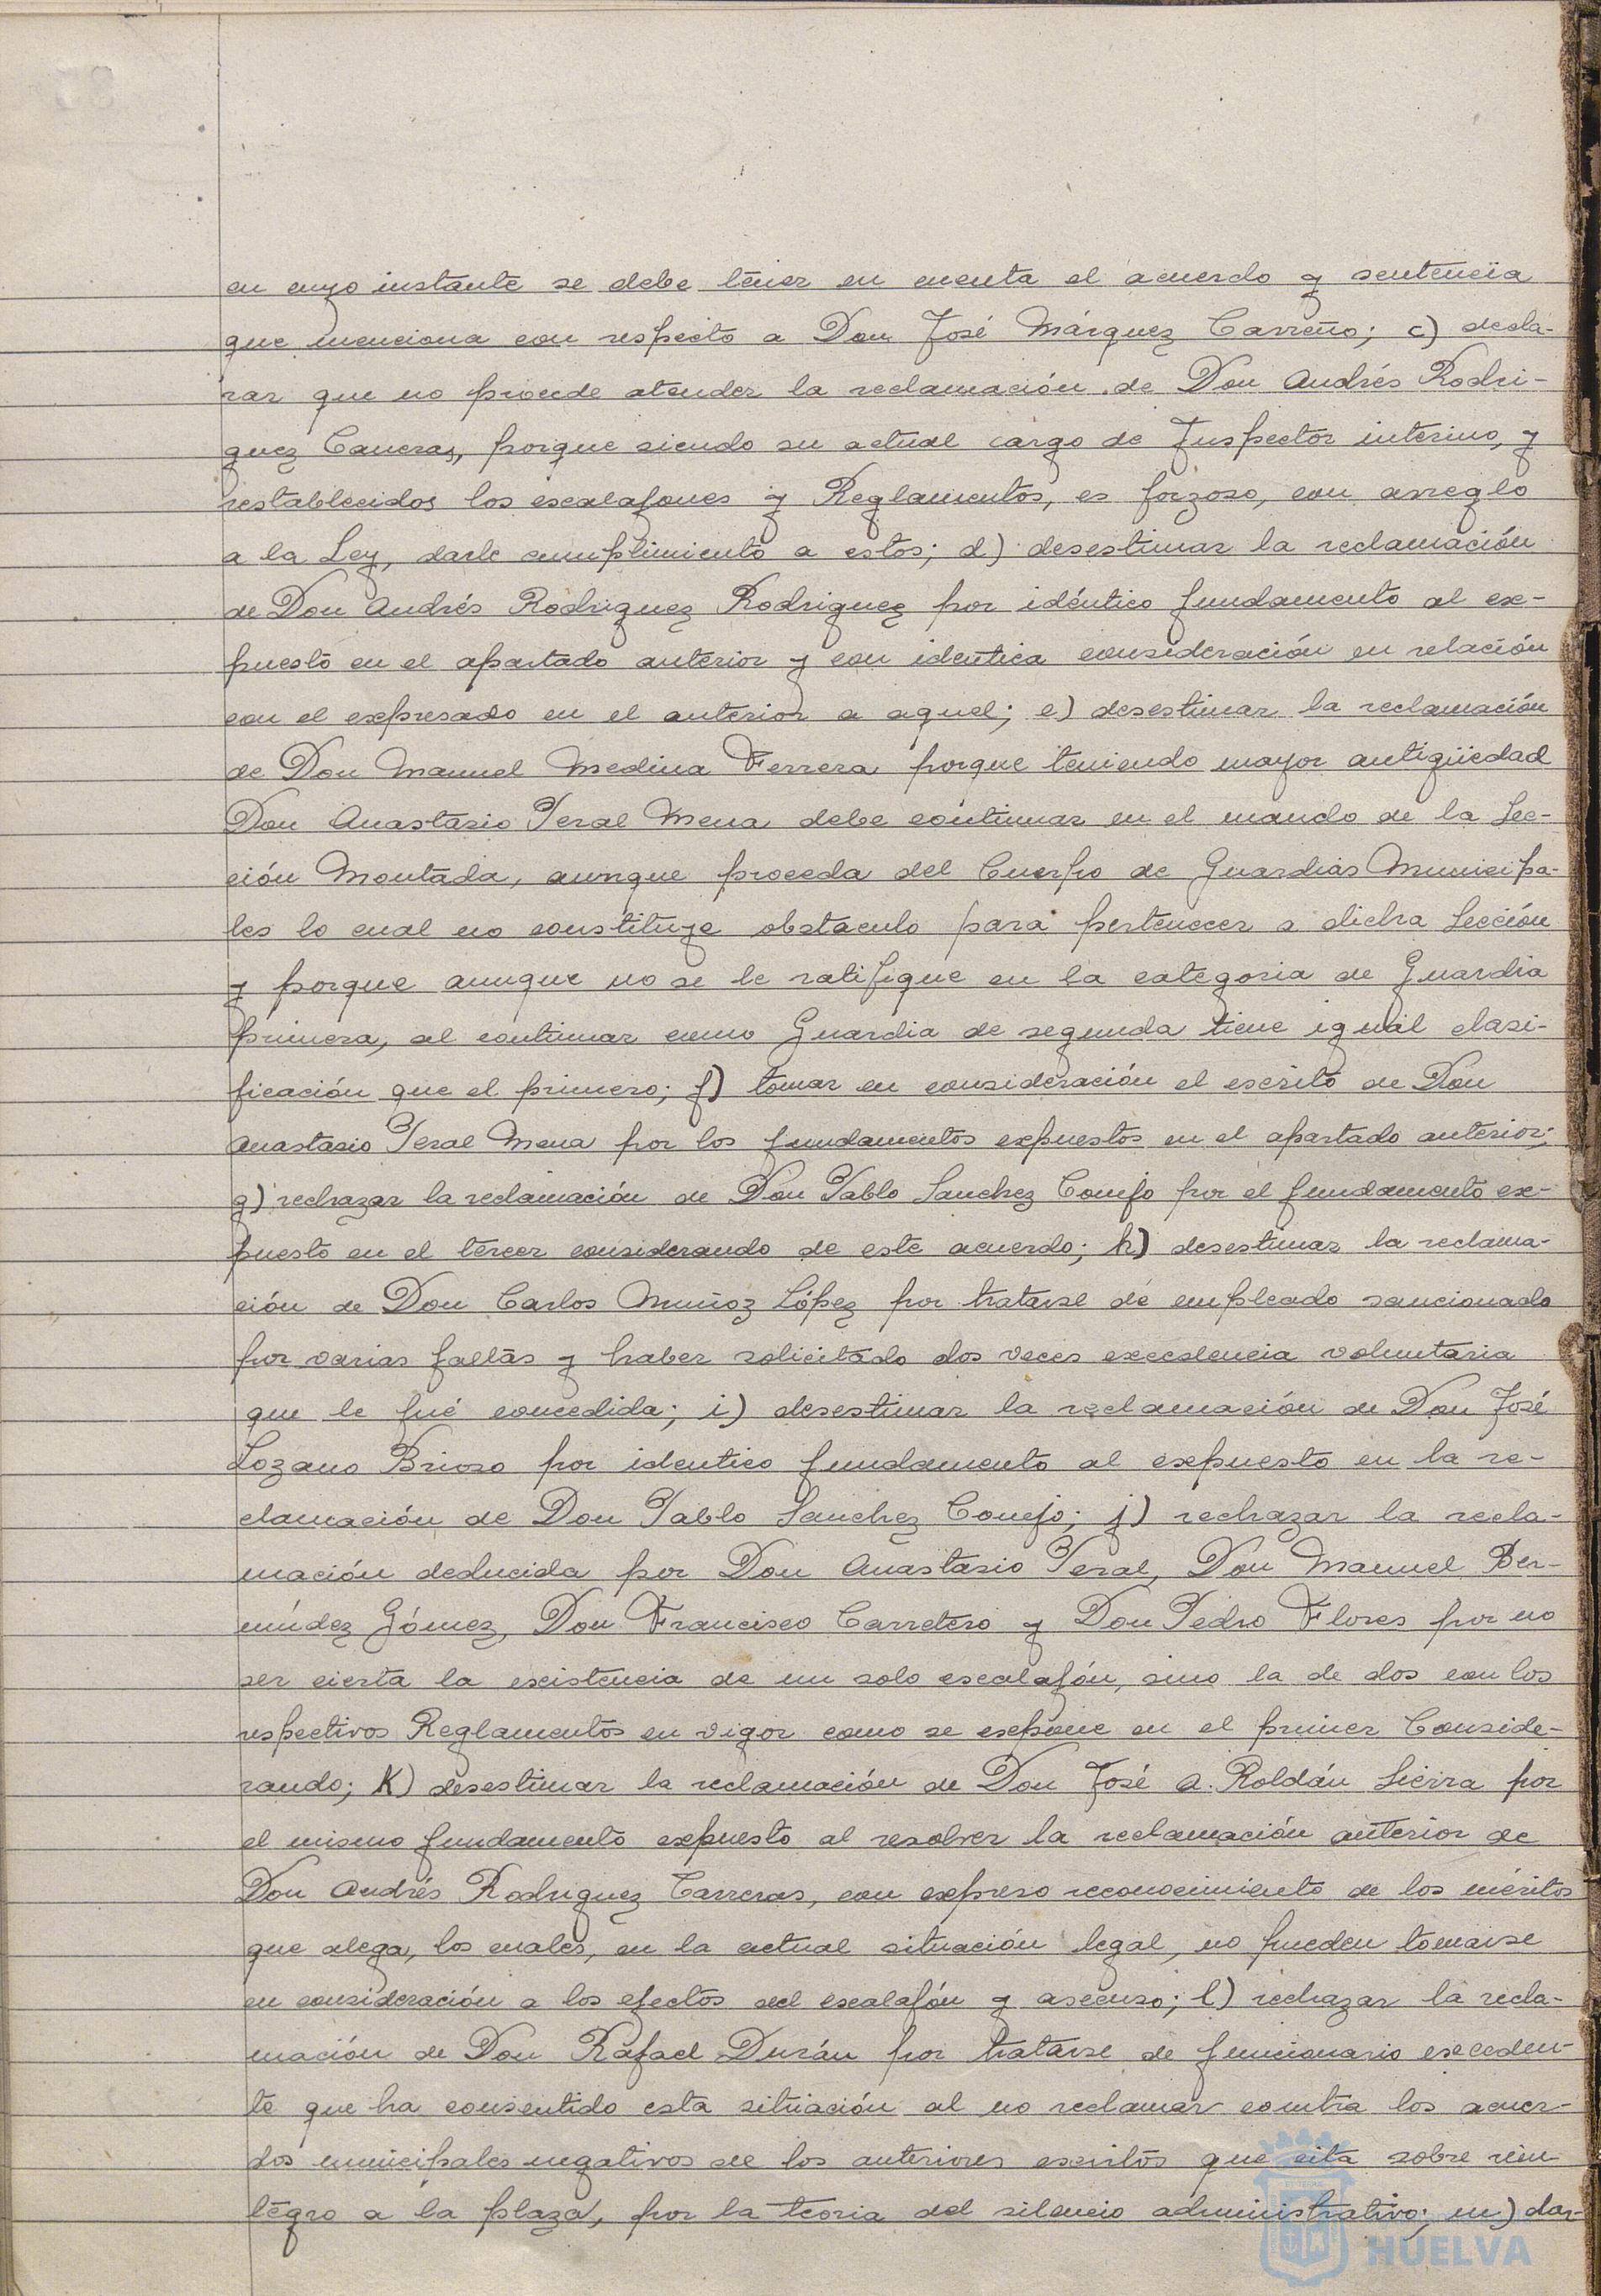 en cuyo instante se debe tener en cuenta el acuerdo y sentencia
que menciona con respecto a Don José Márquez Carreño; c) decla-
rar que no procede atender la reclamación de Don Andrés Rodri-
guez Carreras, porque siendo su actual cargo de Inspector interino, y
restablecidos los escalafones y Reglamentos, es forzoso, con arreglo
a la Ley, darle cumplimiento a estos; d) desestimar la reclamación
de Don Andrés Rodriguez Rodriguez por idéntico fundamento al ex-
puesto en el apartado anterior y con identica consideración en relación
con el expresado en el anterior a aquel; e) desestimar la reclamación
de Don Manuel Medina Ferrera porque teniendo mayor antigüedad
Don Anastasio Peral Mena debe continuar en el mando de la Sec-
ción Montada, aunque proceda del Cuerpo de Guardias Municipa-
les lo cual no constituye obstaculo para pertenecer a dicha Sección
y porque aunque no se le ratifique en la categoria de Guardia
primera, al continuar como Guardia de segunda tiene igual clasi-
ficación que el primero; f) tomar en consideración el escrito de Don
Anastasio Peral Mena por los fundamentos expuestos en el apartado anterior;
g) rechazar la reclamación de Don Pablo Sanchez Conejo por el fundamento ex-
puesto en el tercer considerando de este acuerdo; h) desestimar la reclama-
ción de Don Carlos Muñoz López por tratarse de empleado sancionado
por varias faltas y haber solicitado dos veces excedencia voluntaria
que le fué concedida; i) desestimar la reclamación de Don José
Lozano Brioso por identico fundamento al expuesto en la re-
clamación de Don Pablo Sanchez Conejo; j) rechazar la recla-
mación deducida por Don Anastasio Peral, Don Manuel Ber-
múdez Gómez, Don Francisco Carretero y Don Pedro Flores por no
ser cierta la existencia de un solo escalafón, sino la de dos con los
respectivos Reglamentos en vigor como se expone en el primer Conside-
rando; K) desestimar la reclamación de Don José A. Roldán Sierra por
el mismo fundamento expuesto al resolver la reclamación anterior de
Don Andrés Rodriguez Carreras, con expreso reconocimiento de los méritos
que alega, los cuales, en la actual situación legal, no pueden tomarse
en consideración a los efectos del escalafón y ascenso; l) rechazar la recla-
mación de Don Rafael Durán por tratarse de funcionario exceden-
te que ha consentido esta situación al no reclamar contra los acuer-
dos municipales negativos de los anteriores escritos que cita sobre rein-
tegro a la plaza, por la teoria del silencio administrativo; m) dar-
HUELVA